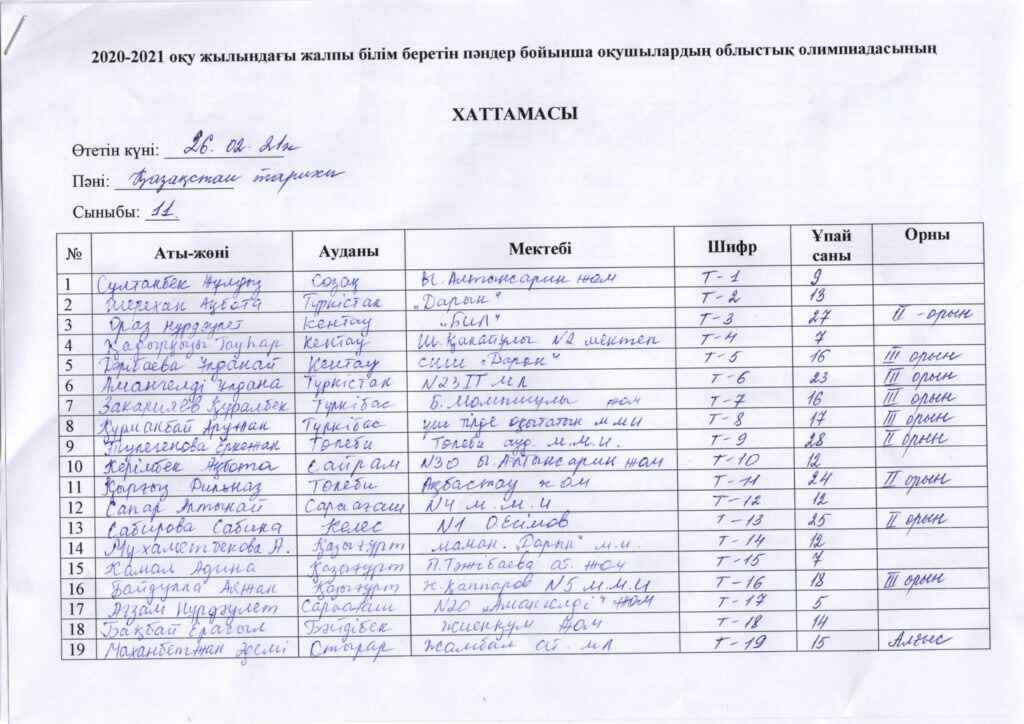 2020-2021 оқу жылындағы жалпы білім беретін пәндер бойынша оқушылардың облыстық олимпиадасының
ХАТТАМАСЫ
Өтетін күні: 26. 02. 21ж
Пәні: Қазақстан тарихы
Сыныбы: 11
№ Аты-жөні Ауданы Мектебі Шифр Ұпай саны Орны
1 Султанбек Жулдыз Созақ Ы. Алтынсарин жом Т-1 9
2 Шерехан Ақбота Түркістан „Дарын“ Т-2 13
3 Ораз Нурдәулет Кентау „БИЛ“ Т-3 27 II -орын
4 Қадырқызы Гауһар Кентау №2 мектеп Т-4 7
5 Ұлданай Кентау „Дарын“ Т-5 16 III орын
6 Амангелді Ұлдана Түркістан №23 IT мл Т-6 23 III орын
7 Закарияев Құралбек Түлкібас Б. Момышұлы жом Т-7 16 III орын
8 Құрманбай Аружан Түлкібас үш тілде оқытатын ммм Т-8 17 III орын
9 Тулегенова Еркежан Төлеби Төлеби ауд. м.м.и. Т-9 28 II орын
10 Керімбек Ақбота Сайрам №30 Ы. Алтынсарин жом Т-10 12
11 Қырғыз Дильназ Төлеби Ақбастау жом Т-11 24 II орын
12 Сапар Алтынай Сарыағаш №4 м.м.и Т-12 12
13 Сабирова Сабина Келес №1 Т-13 25 II орын
14 Мухаметбекова А. Қазығұрт маман. „Дарын“ м.и. Т-14 12
15 Камал Адина Қазығұрт П. Тәжібаева ат. жом Т-15 7
16 Байдулла Ақжан Қазығұрт Ж. Қаппаров №5 м.м.и Т-16 18 III орын
17 Аззам Нұрдәулет Сарыағаш №20 „Амангелді“ жом Т-17 5
18 Бақбай Ерасыл Бәйдібек Жиенқұм жом Т-18 14
19 Маханбетжан Әсемі Отырар Жамбыл ат. мл Т-19 15 Алғыс